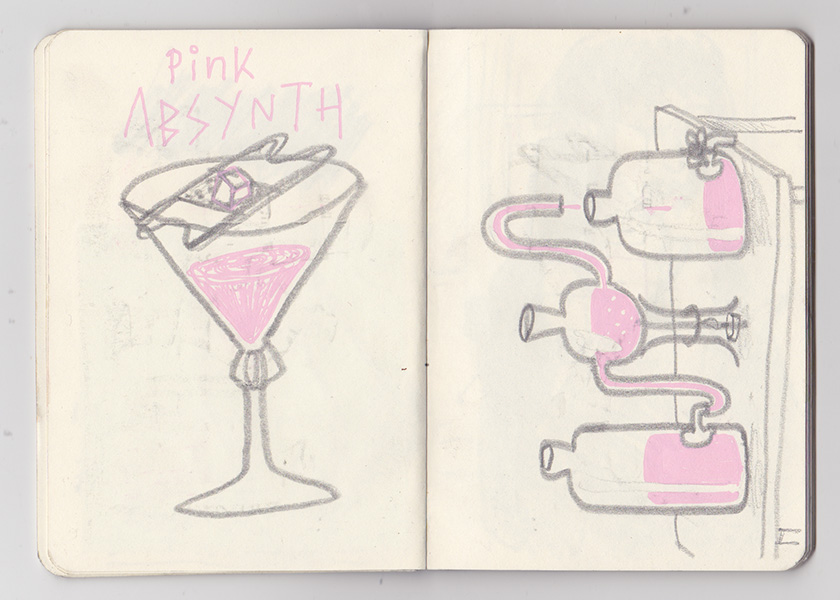 Pink
ABSYNTH